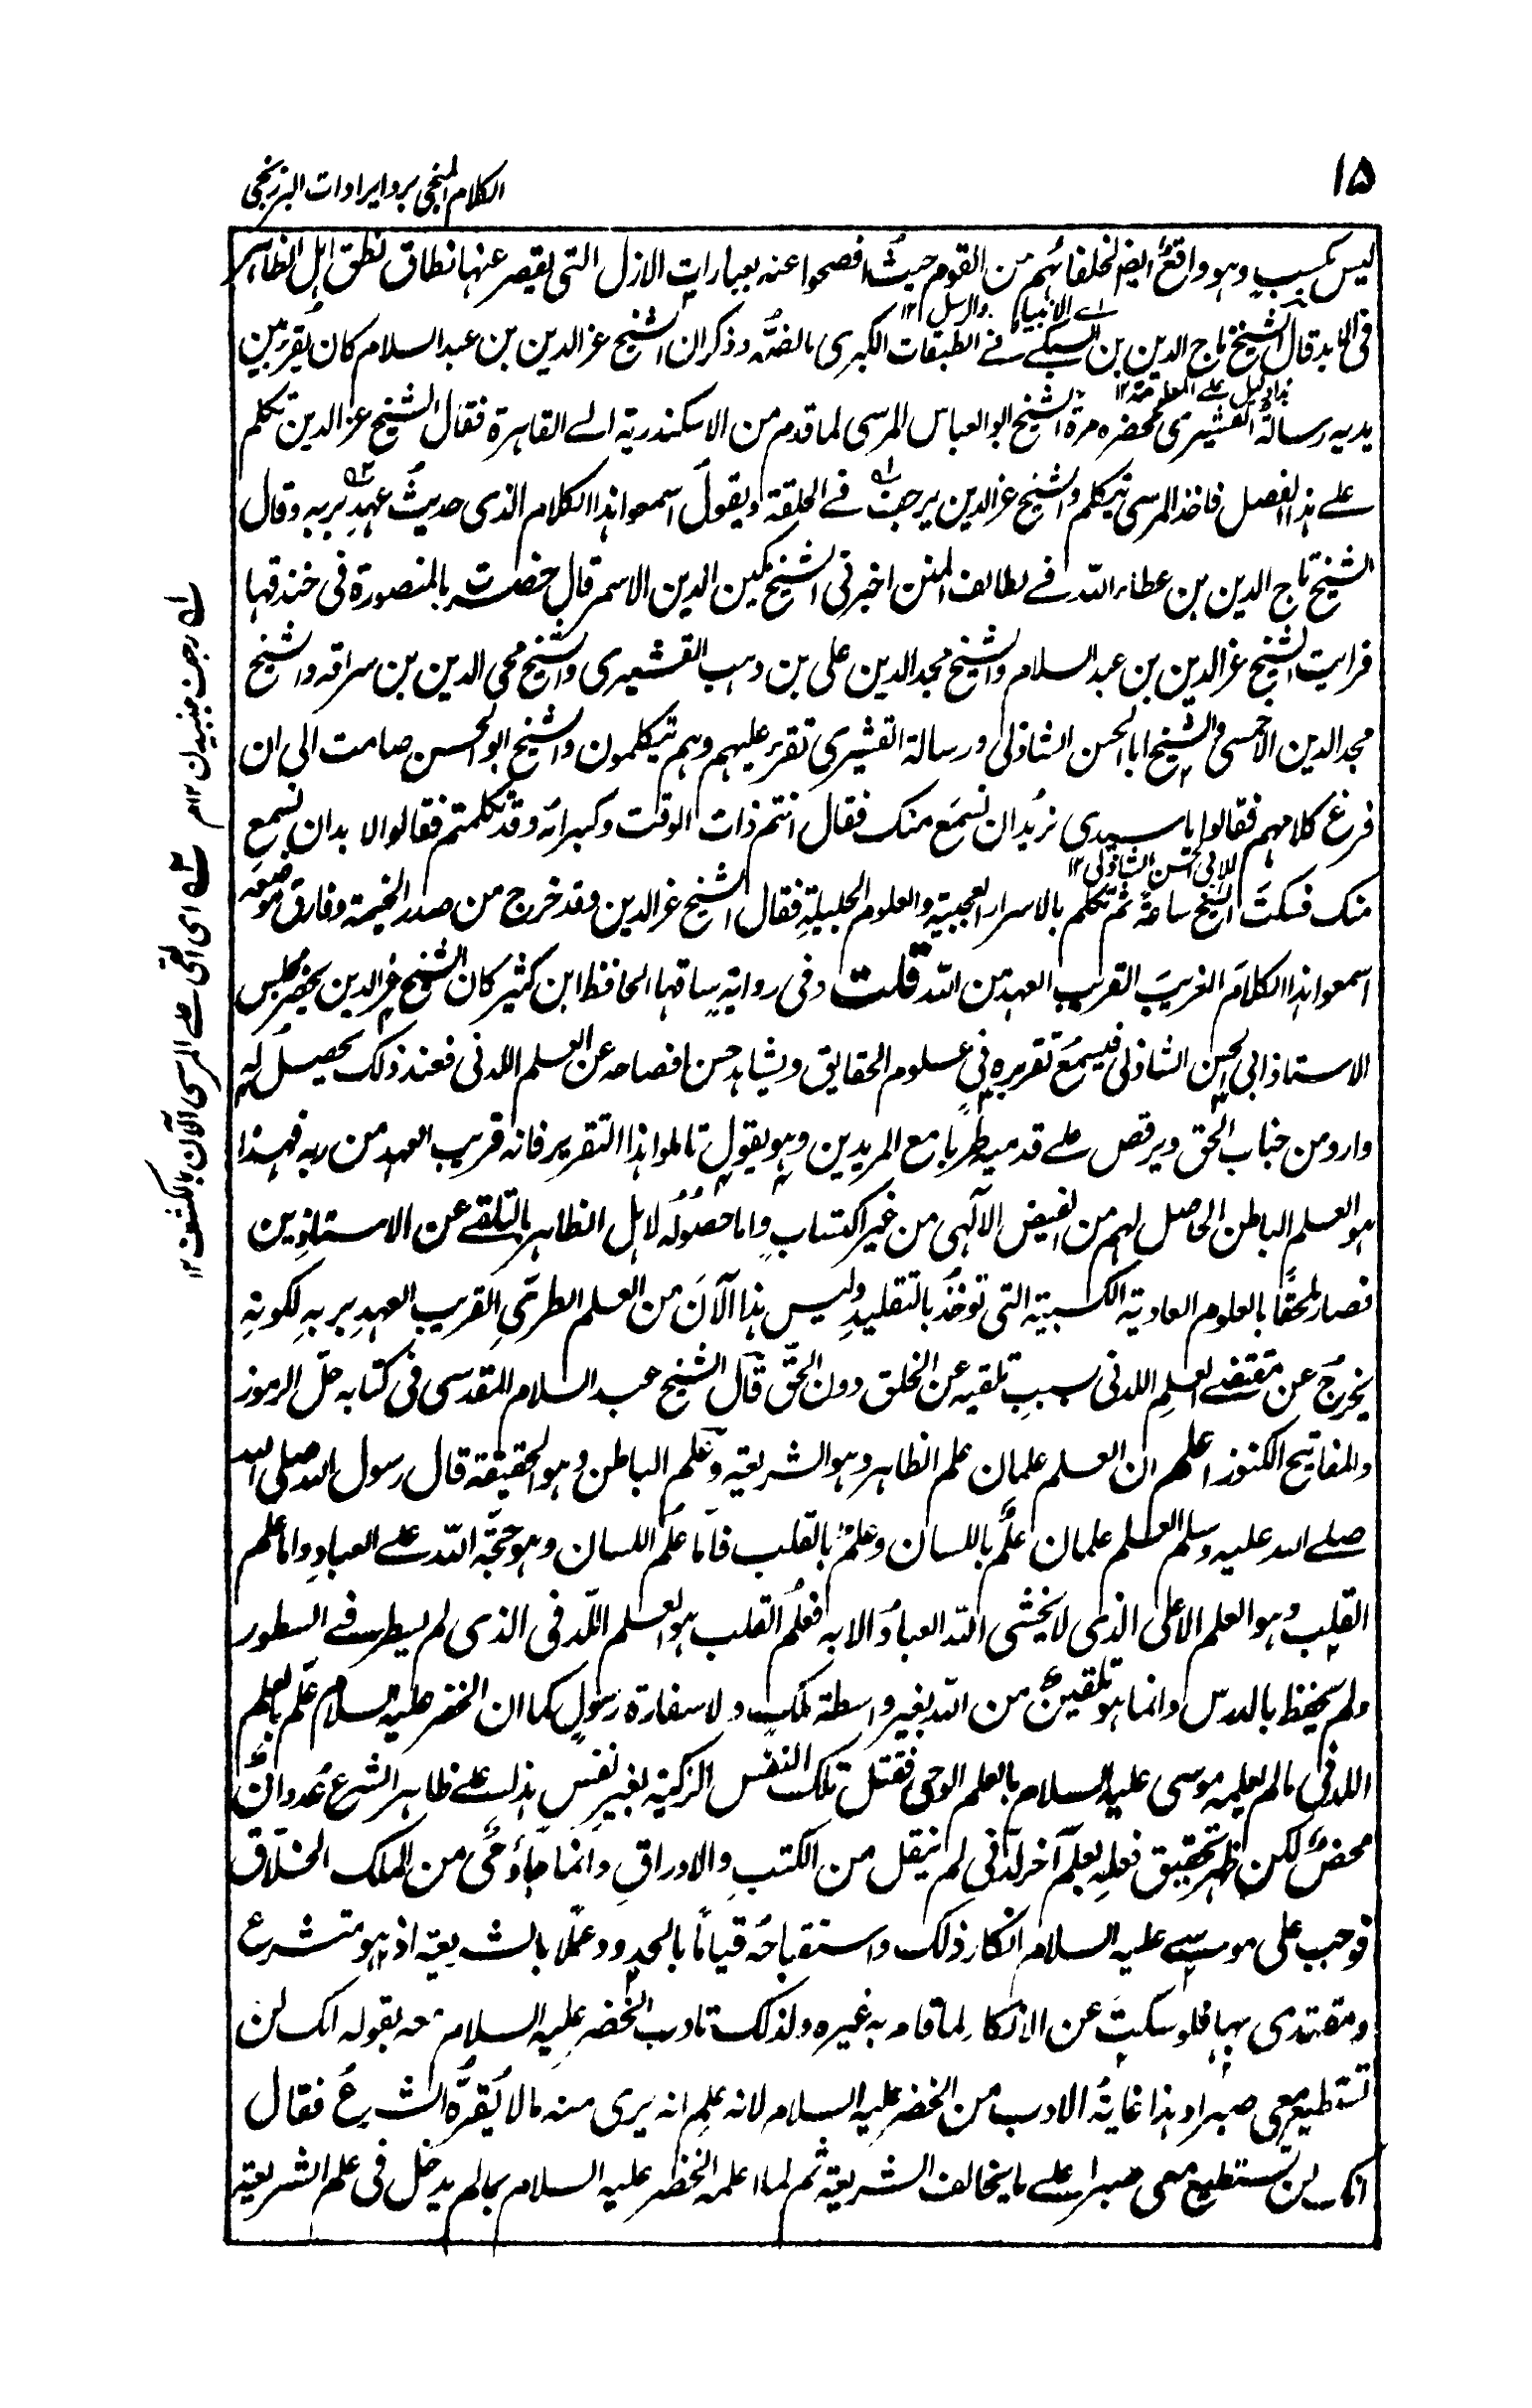 ۱۵
الكلام المنجى برد ايرادات البرزنجى
ليس بكسبٍ وهو واقعٌ ايضا لخلفائهم من القوم حيثُ افصحوا عنه بعبارات الازل التى يقصر عنها نطاق نطق اهل الظاهر
اے الانبياء والرسل ۱۲
قال الشيخ تاج الدين بن السبكے فے الطبقات الكبرى مالفظه وذكر ان الشيخ عز الدين بن عبد السلام كان يقرء بين
يديه رسالةُ القشيرى فحضره مرة الشيخ ابو العباس المرسى لما قدم من الاسكندرية الے القاهرة فقال الشيخ عز الدين تكلم
علے هذا الفصل فاخذ المرسى يتكلم والشيخ عز الدين يرجف فے الحلقة ويقولُ اسمعوا هذا الكلام الذى حديثُ عهدٍ بربه وقال
الشيخ تاج الدين بن عطاء الله فے لطائف المنن اخبرنى الشيخ مكين الدين الاسمر قال حضرت بالمنصورة فى خندقها
فرايت الشيخ عز الدين بن عبد السلام والشيخ مجد الدين على بن وهب القشيرى والشيخ محى الدين بن سراقه والشيخ
مجد الدين الاخمسى والشيخ ابا الحسن الشاذلى ورسالة القشيرى تقرء عليهم وهم يتكلمون والشيخ ابو الحسن صامت الى ان
فرغ كلامهم فقالوا يا سيدى نريدُ ان نسمَع منك فقال انتم ذات الوقت وكبرائه وقد تكلمتم فقالوا لا بد ان نسمع
للابى الحسن الشاذلى ۱۲
منك فسكتَ الشيخ ساعةً ثم تكلم بالاسرار العجيبة والعلوم الجليلةِ فقال الشيخ عز الدين وقد خرج من صدر الخيمة وفارق موضعه
اسمعوا هذا الكلامَ الغريبَ القريب العهد من الله قلت وفى روايةٍ ساقها الحافظ ابن كثير كان الشيخ عز الدين يحضر مجلس
الاستاذ ابى الحسن الشاذلى فيسمَعُ تقريره فى علوم الحقايق ويشاهد حسن افصاحه عن العلم اللدنى فعند ذلك يحصلُ له
وارد من جناب الحق ويرقص علے قدميه طربا مع المريدين وهو يقول تاملوا هذا التقرير فانه قريب العهد من ربه فهذا
هو العلم الباطن الحاصل لهم من الفيض الآلهى من غير اكتسابٍ واما حصُولُه لاهل الظاهر بالتلقے عن الاستاذِين
فصار ملحقًا بالعلوم العادية الكسبية التى توخذُ بالتقليدِ وليس هذا الآنَ من العلم الطرىِّ القريب العهدِ بربهِ لكونهِ
يخرجُ عن مقتضے العلمِ اللدنى بسببِ تلقيه عن الخلق دون الحقِّ قال الشيخ عبد السلام المقدسى فى كتابه حلّ الرموز
والمفاتيح الكنوز اعلم ان العلم علمان علم الظاهر وهو الشريعة وعلم الباطن وهو الحقيقة قال رسول الله صلى الله
صلے الله عليه وسلم العلم علمان علمٌ باللسان وعلمٌ بالقلب فاَما علم اللسان وهو حجّة الله علے العبادِ واما علم
القلب وهو العلم الاعلى الذى لا يخشى الله العبادُ الا به فعلمُ القلب هو العلم اللّدنى الذى لم يسطر فے السطور
ولم يحفظ بالدرسِ وانما هو تلقينٌ من الله بغير واسطة ملكٍ ولا سفارة رسُولٍ كما ان الخضر عليه السلام علم بالعلم
اللدنى ما لم يعلمه موسى عليه السلام بالعلم الوحى فقتل تلك النفس الزكية بغيرِ نفسٍ هذا علے ظاهر الشرع عُدوانٌ
محضٌ لكن ظهر تحقيق فعلهِ بعلمٍ آخر لدُنى لم ينقل من الكتبِ والاوراقِ وانما جاء وحىٌ من الملك الخلّاق
فوجب على موسےٰ عليه السلام انكار ذلك واستقباحُه قيامًا بالحدود وعملًا بالشريعة اذ هو متشرع
ومقتدى بها فلو سكتَ عن الانكار لما قام به غيره ولذلك تادب الخضر عليه السلام معه بقوله انك لن
تستطيع معى صبرا وهذا غايةُ الادب من الخضر عليه السلام لانه علم انه يرى منه ما لا يُقرُّه الشرعُ فقال
انك لن تستطيع معى صبرا علے ما يخالف الشريعة ثم لما اعلمه الخضر عليه السلام بما لم يدخل فى علم الشريعة
رجف جنبيدن ۱۲م
اى القى علے المرسى الآن بالكشف ۱۲